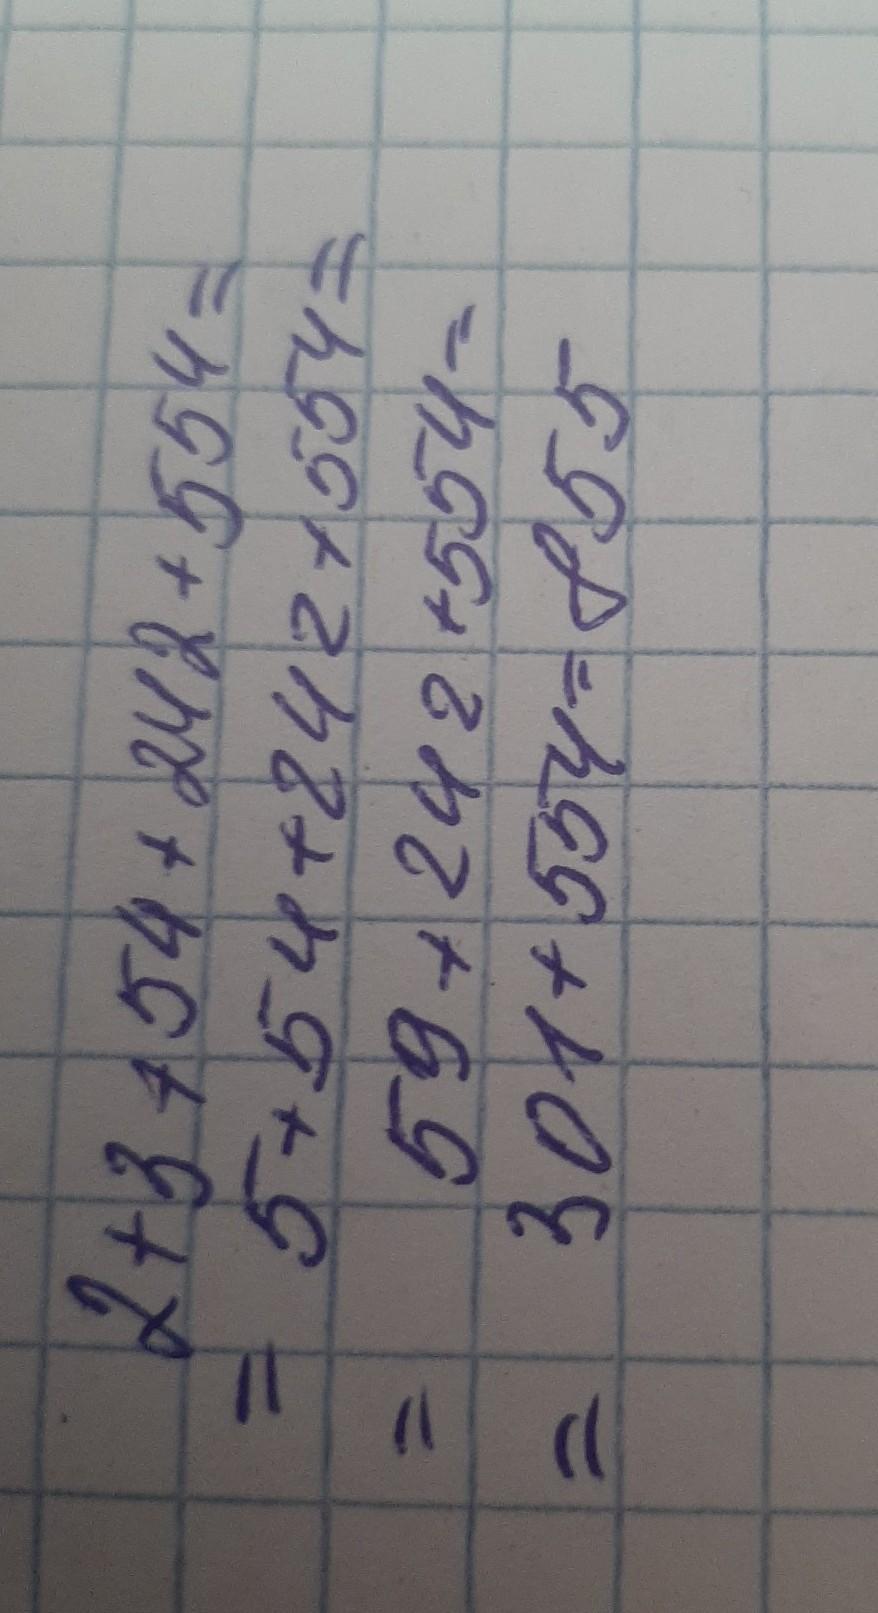 2+3+54+242+554=
=5+54+242+554=
=59+242+554=
=301+554=855